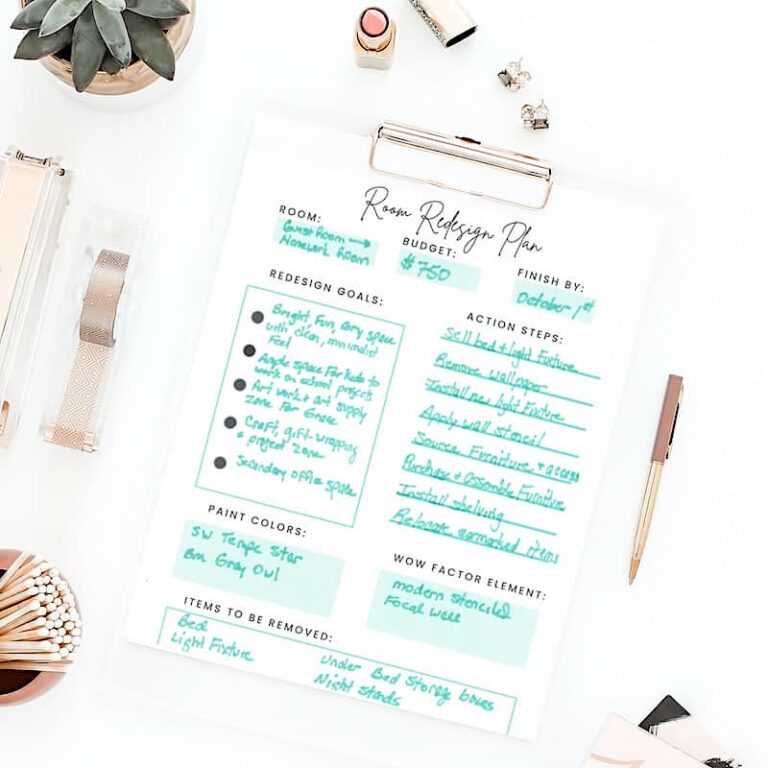 Room Redesign Plan
ROOM:
Guest Room →
Homework Room
BUDGET:
$750
FINISH BY:
October 1st
REDESIGN GOALS:
Bright, Fun, airy space
with clean, minimalist
Feel
Ample space For kids to
work on school projects
Art work + art supply
Zone For Grace
Craft, gift-wrapping
+ project Zone
Secondary office space
ACTION STEPS:
Sell bed + light Fixture
Remove wallpaper
Install new light Fixture
Apply wall stencil
Source Furniture + access
Purchase + Assemble Furniture
Install shelving
Relocate earmarked items
PAINT COLORS:
SW Tempe Star
BM Gray Owl
WOW FACTOR ELEMENT:
modern stenciled
Focal wall
ITEMS TO BE REMOVED:
Bed
Light Fixture
Under Bed Storage boxes
Night Stands